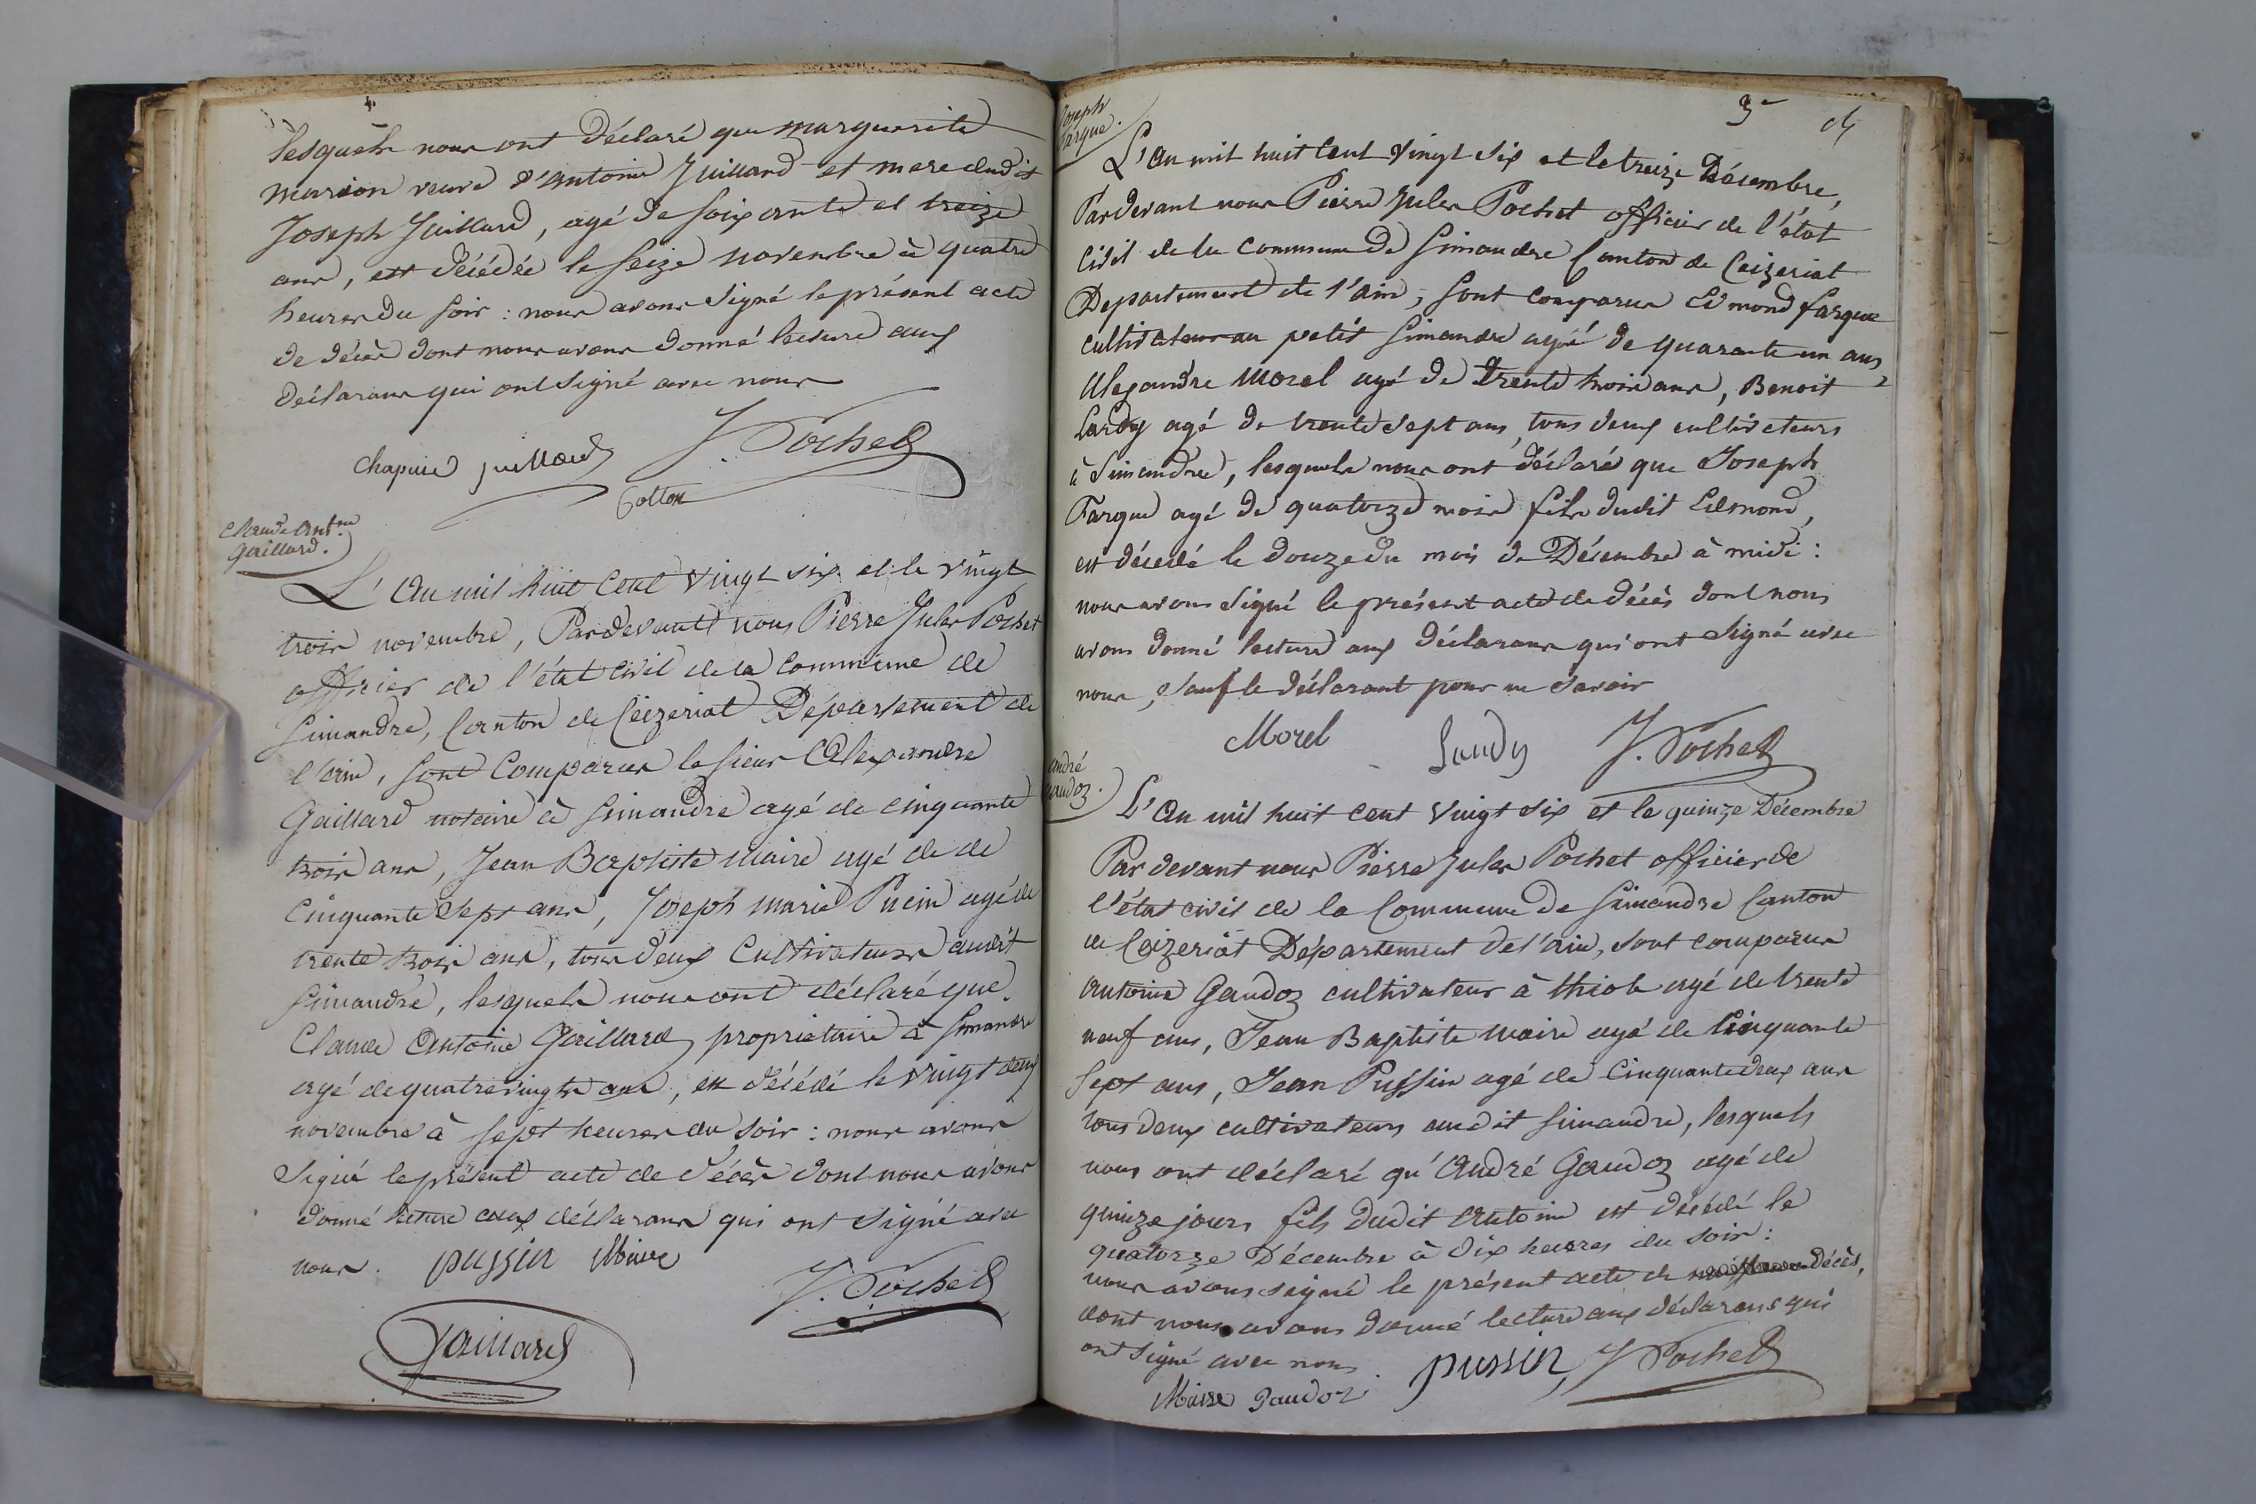 lesquels nous ont déclaré que marguerite
marion veuve d'antoine Juillard et mere dudit
Joseph Juillard, agé de soixante et treize
ans, est décédée le seize novembre à quatre
heures du soir : nous avons signé le présent acte
de décès dont nous avons donné lecture aux
déclarans qui ont signé avec nous
chapuis juillard J. Pochet
Cotton
Claude Ant.ne
Gaillard.
L'an mil huit cent vingt six et le vingt
trois novembre, Pardevant nous Pierre Jules Pochet
officier de l'état civil de la commune de
Simandre, Canton de Ceizeriat Département de
l'ain, sont comparus le sieur Alexandre
Gaillard notaire à Simandre agé de cinquante
trois ans, Jean Baptiste Maire agé de de
cinquante sept ans, Joseph marie Pucin agé de
trente trois ans, tous deux Cultivateurs audit
Simandre, lesquels nous ont déclaré que
Claude Antoine Gaillard propriétaire à Simandre
agé de quatrevingts ans, est décédé le vingt deux
novembre à sept heures du soir : nous avons
signé le présent acte de décès dont nous avons
donné lecture aux déclarans qui ont signé avec
nous. pussin Maire
J. Pochet
Gaillard
3e
Joseph
Fargue.
L'an mil huit cent vingt six et le treize Décembre,
Pardevant nous Pierre Jules Pochet officier de l'état
civil de la commune de Simandre Canton de Ceizeriat
Departement de l'ain, sont comparus Edmond fargue
cultivateur au petit Simandre agé de quarante un ans,
Alexandre Morel agé de trente trois ans, Benoit
Landy agé de trente sept ans, tous deux cultivateurs
à Simandre, lesquels nous ont déclaré que Joseph
Fargue agé de quatorze mois fils dudit Edmond,
est décédé le douze du mois de Décembre à midi :
nous avons signé le présent acte de décès dont nous
avons donné lecture aux déclarans qui ont signé avec
nous, sauf le déclarant pour ne savoir
Morel Landy J. Pochet
andré
gaudoz.
L'an mil huit cent vingt six et le quinze Décembre
Pardevant nous Pierre Jules Pochet officier de
l'état civil de la Commune de Simandre Canton
de Ceizeriat Département de l'ain, sont comparus
Antoine Gaudoz cultivateur à thiole agé de trente
neuf ans, Jean Baptiste Maire agé de Cinquante
sept ans, Jean Pussin agé de Cinquante deux ans
tous deux cultivateurs audit Simandre, lesquels
nous ont déclaré qu'André Gaudoz agé de
quinze jours fils dudit Antoine est décédé le
quatorze Décembre à dix heures du soir :
nous avons signé le présent acte de décès,
dont nous avons donné lecture aux déclarans qui
ont signé avec nous pussin J Pochet
Maire Gaudoz